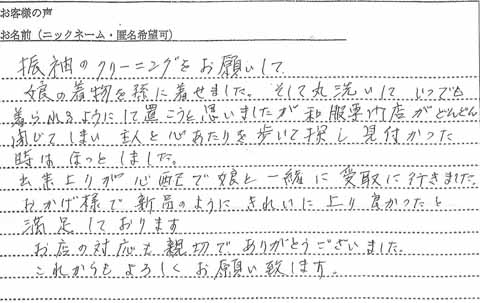 お客様の声
お名前（ニックネーム・匿名希望可）
振袖のクリーニングをお願いして
娘の着物を孫に着せました。そして丸洗いして いつでも
着られるようにして置こうと思いましたが和服専門店がどんどん
閉じてしまい 主人と心あたりを歩いて探し 見付かった
時は ほっとしました。
出来上りが心配で娘と一緒に受取に行きました。
おかげ様で 新品のように きれいに上り 良かったと
満足しております
お店の対応も親切で ありがとうございました。
これからもよろしくお願い致します。